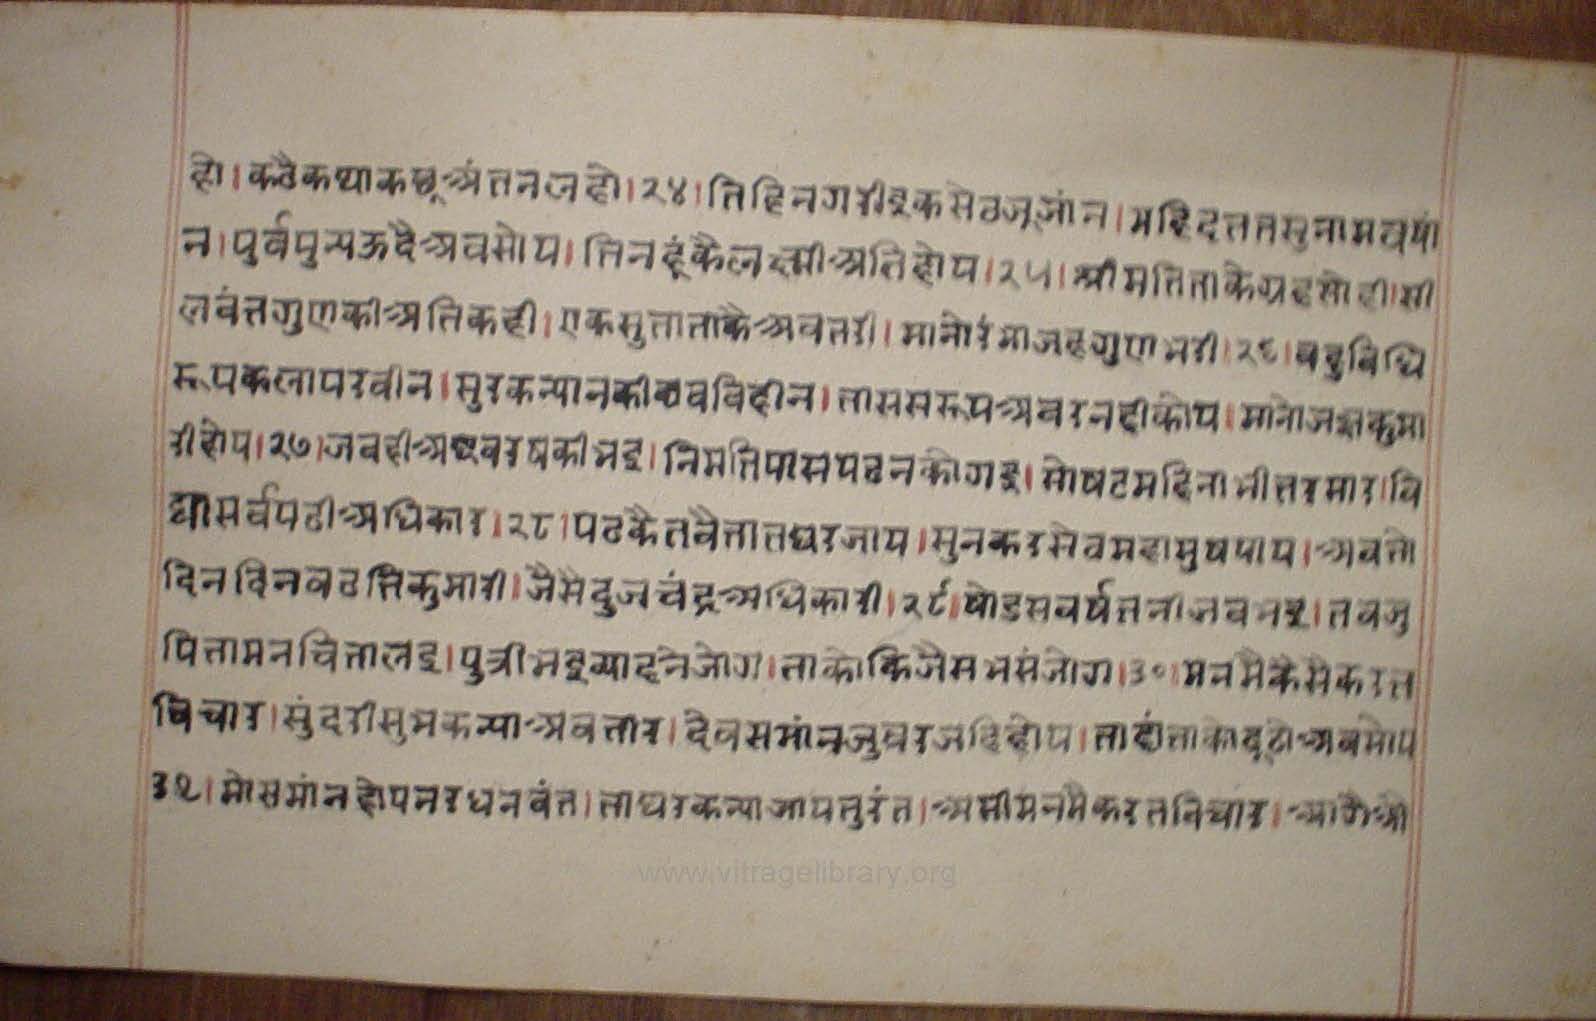 हो।कहैकथाकछूअंतनलहो।२४।तिहिनगरीइकसेठजूजांन।महिदत्ततसुनामवषां
न।पुर्वपुन्यऊदैअवसोय।तिनहूंकैलक्ष्मीअतिहोय।२५।श्रीमतिताकेग्रहसोही।सी
लवंत्तगुणकीअतिकही।एकसुताताकैअवतरी।मानोरंमाजहगुणभरी।२६।बहुबिधि
रूपकलापरवीन।सुरकन्यानकीछवविहीन।तासस‍रूपअवरनहीकोय।मानोजक्षकुमा
रीहोय।२७।जवहीअष्टवरषकीभइ।निमतिपासपढनकोगइ।सोषटमहिनाभीत्तरसार।वि
द्यासर्वपढीअधिकार।२८।पढकैतवैत्तातघरजाय।सुनकरसेवमहासुषपाय।अवत्तो
दिनदिनवढत्तिकुमारी।जैसेदुजचंद्रअधिकारी।२९।षोडसवर्षतनीजवभइ।तवजु
पित्तामनचित्तालइ।पुत्रीभइव्याहनेजोग।ताकोकिजैसभसंजोग।३०।मनमैकैसेकरत
विचार।सुंदरीसुभकन्याअवत्तार।देवसमांनजुवरजहिहोय।ताहांत्ताकोढूढोअवसोय
३१।मोसमांनहोयनरधनवंत।ताघरकन्याजायतुरंत।असीमनमैकरतविचार।आगैऔ
www.vitragelibrary.org